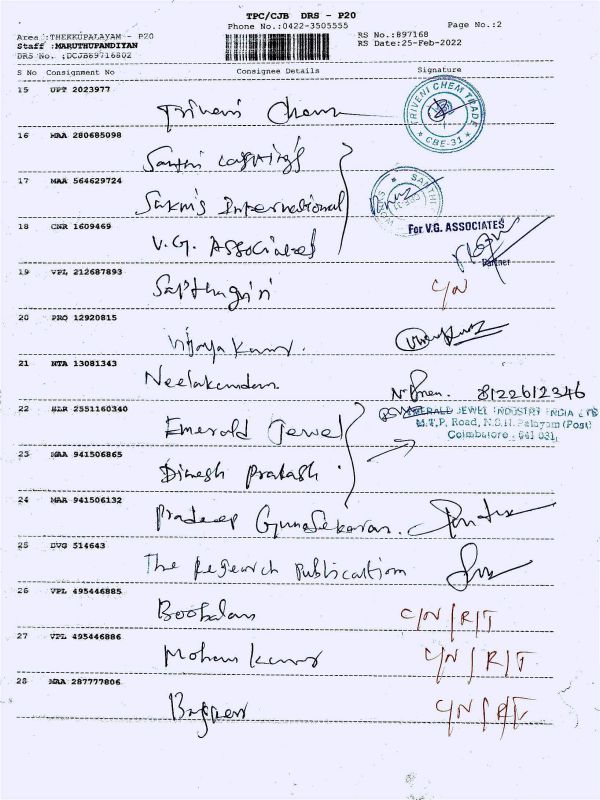 TPC/CJB DRS - P20
Phone No.:0422-3505555 Page No.:2
Area :THEKKUPALAYAM - P20 RS No.:897168
Staff :MARUTHUPANDIYAN RS Date:25-Feb-2022
DRS No. :DCJB69716802
S No Consignment No Consignee Details Signature
15 UPT 2023977
Triveni Chem TRIVENI CHEM TRADE * CBE-31 *
16 MAA 280685098
Santhi Castings
17 MAA 564629724
Sakthi's International SANTHI
18 CNR 1609469 For V.G. ASSOCIATES
V.G. Associates Partner
19 VPL 212687893
Sapthagiri C/N
20 PRO 12920815
Vijaya Kumar.
21 NTA 13081343
Neelakandan 8122612346
22 BLR 2551160340 EMERALD JEWEL INDUSTRY INDIA LTD
Emerald Jewel M.T.P. Road, N.S.N. Palayam (Post)
Coimbatore - 641 031.
23 MAA 941506865
Dinesh Prakash
24 MAA 941506132
Pradeep Gunasekaran.
25 DVG 514643
The Research Publication
26 VPL 495446885
Boobalan C/N/R/T
27 VPL 495446886
Mohan Kumar C/N/R/T
28 MAA 287777806
C/N/R/T